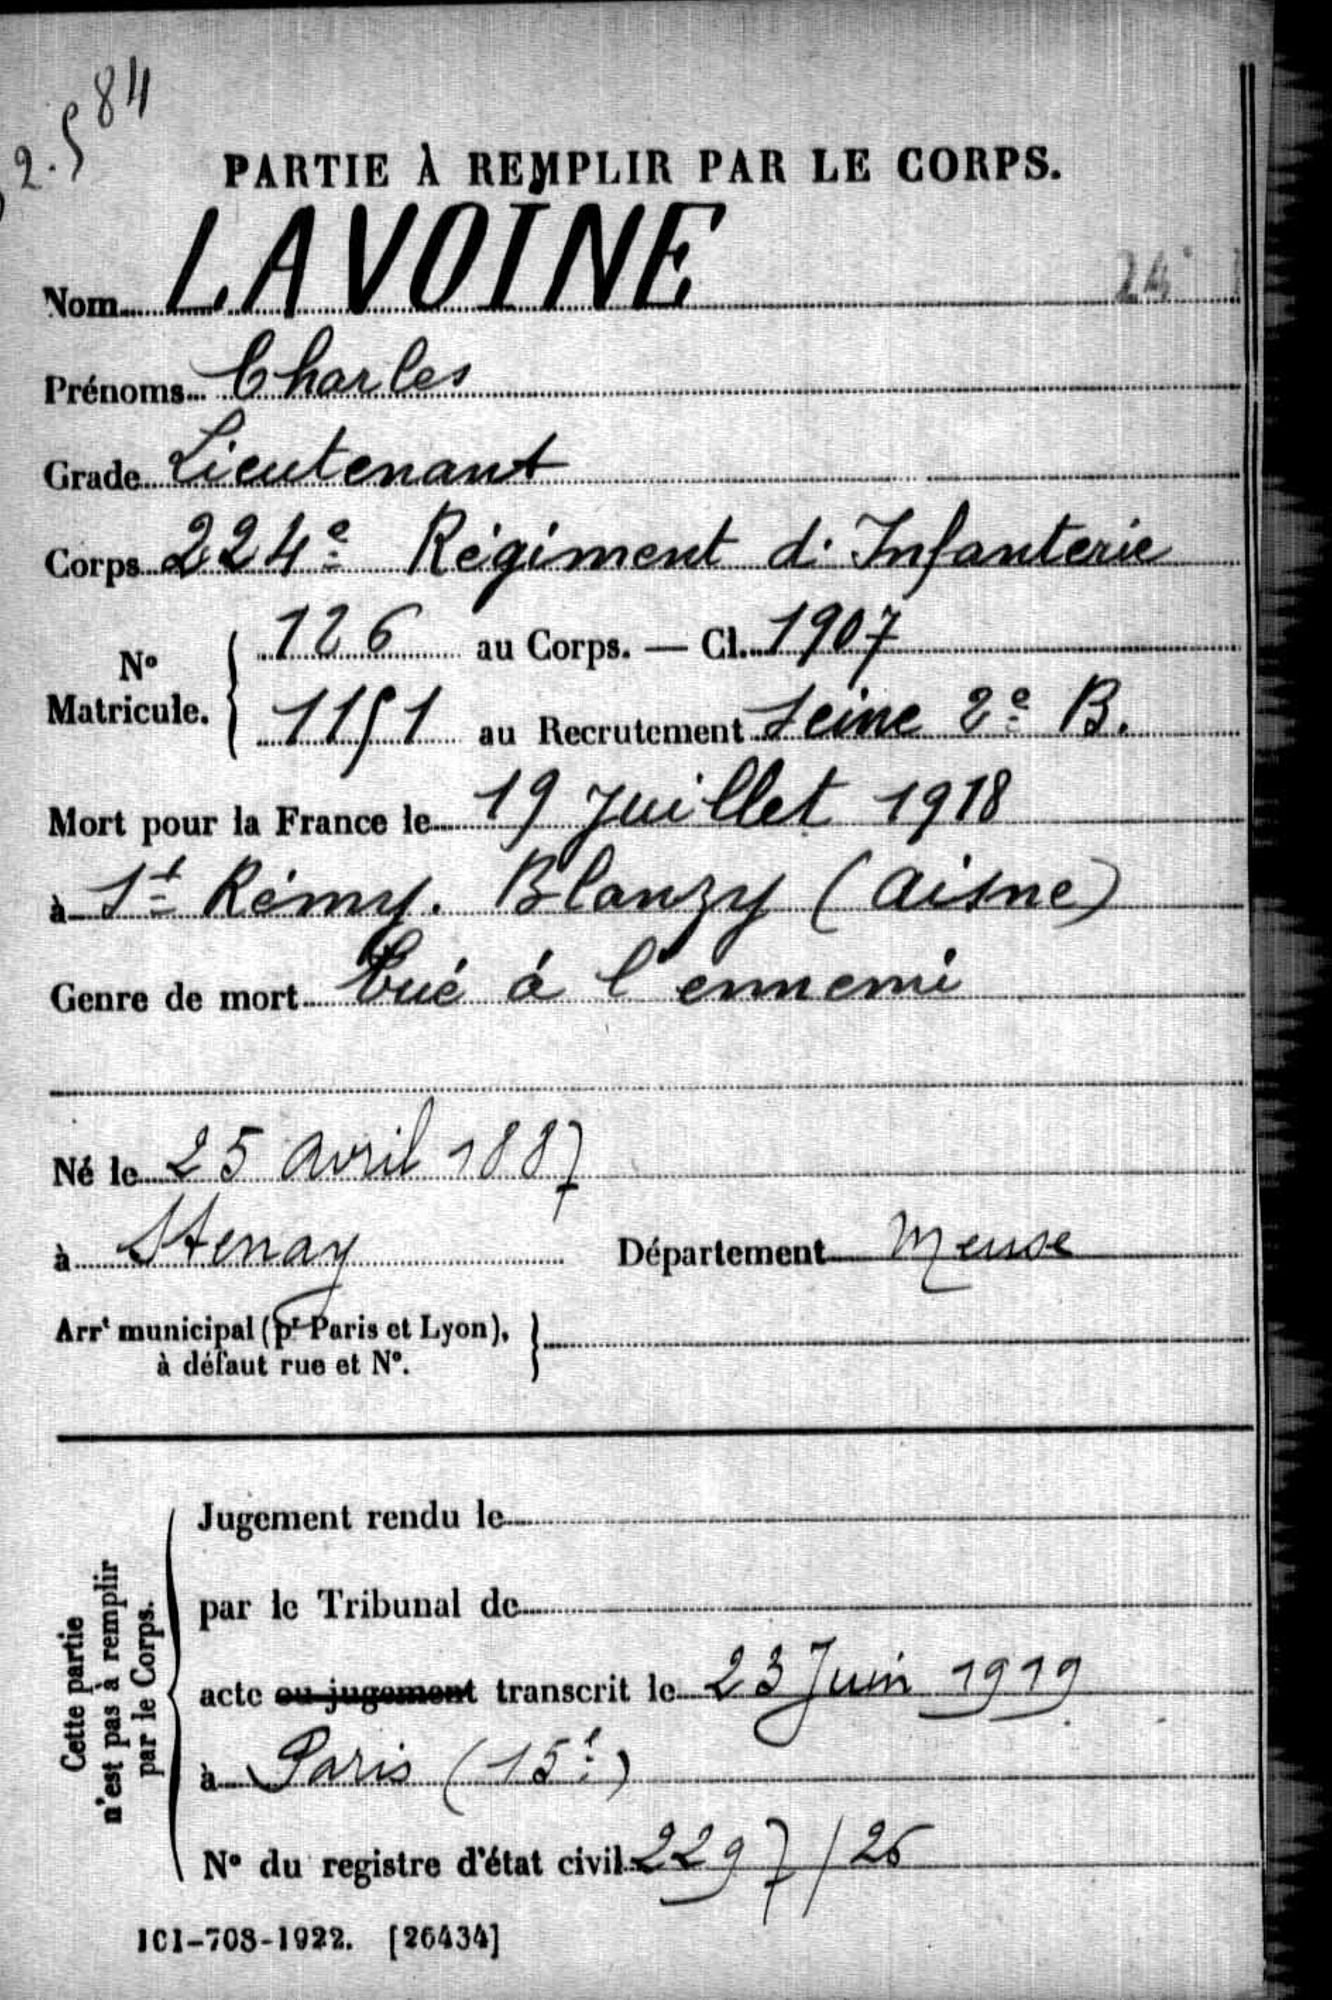 2.584
PARTIE À REMPLIR PAR LE CORPS.
Nom LAVOINE
Prénoms Charles
Grade Lieutenant
Corps 224e Régiment d'Infanterie
N° Matricule. { 126 au Corps. — Cl. 1907
1151 au Recrutement Seine 2e B.
Mort pour la France le 19 Juillet 1918
à St Rémy. Blanzy (Aisne)
Genre de mort Tué à l'ennemi
Né le 25 avril 1887
à Stenay Département Meuse
Arrt municipal (pr Paris et Lyon), }
à défaut rue et N°.
Cette partie
n'est pas à remplir
par le Corps.
Jugement rendu le
par le Tribunal de
acte ou jugement transcrit le 23 Juin 1919
à Paris (15e)
N° du registre d'état civil 2297/26
1C1-708-1922. [26434]